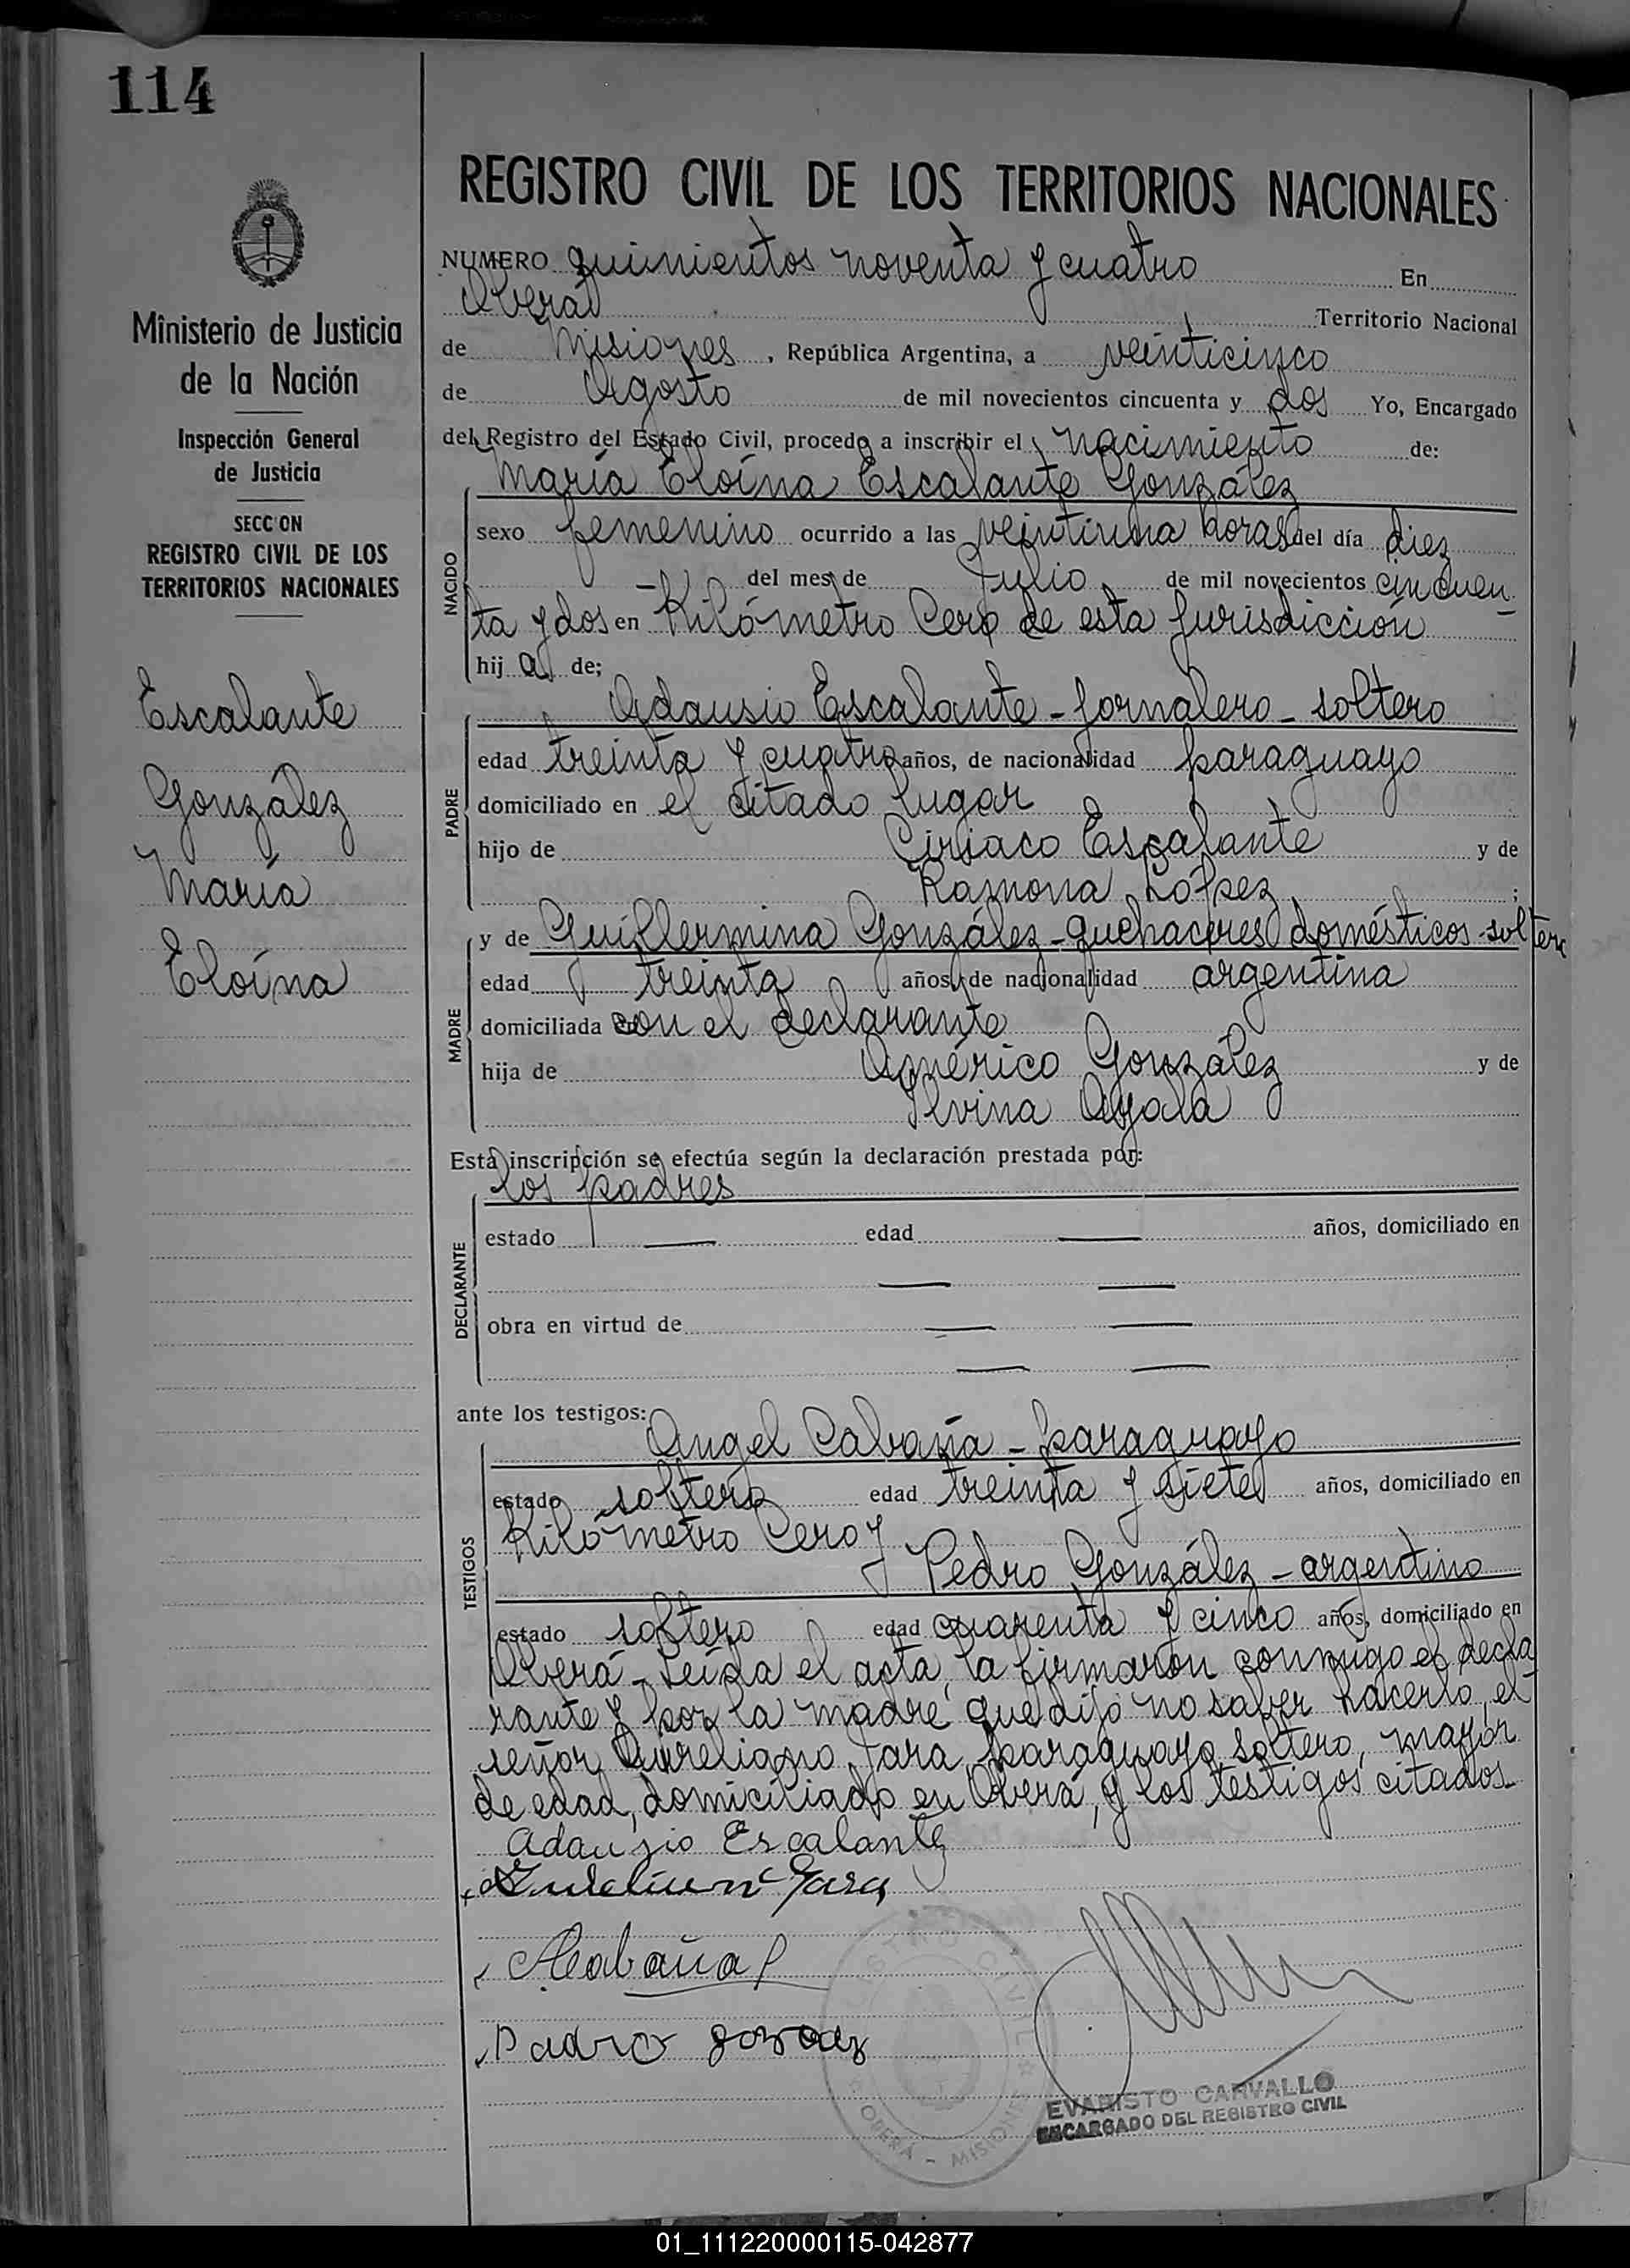 114
Ministerio de Justicia
de la Nación
Inspección General
de Justicia
SECC ON
REGISTRO CIVIL DE LOS
TERRITORIOS NACIONALES
Escalante
González
María
Eloína
REGISTRO CIVIL DE LOS TERRITORIOS NACIONALES
NUMERO quinientos noventa y cuatro En
Oberá Territorio Nacional
de Misiones, República Argentina, a veinticinco
de Agosto de mil novecientos cincuenta y dos Yo, Encargado
del Registro del Estado Civil, procedo a inscribir el nacimiento de:
María Eloína Escalante González
NACIDO
sexo femenino ocurrido a las veintiuna horas del día diez
— del mes de Julio de mil novecientos cincuen
ta y dos en Kilómetro Cero de esta Jurisdicción
hij a de;
Adausio Escalante - jornalero - soltero
PADRE
edad treinta y cuatro años, de nacionalidad paraguayo
domiciliado en el citado lugar
hijo de Ciriaco Escalante y de
Ramona López ;
MADRE
y de Guillermina González - quehaceres domésticos - soltera
edad treinta años, de nacionalidad argentina
domiciliada con el declarante
hija de Américo González y de
Ilvina Ayala
Esta inscripción se efectúa según la declaración prestada por:
los padres
DECLARANTE
estado — edad — años, domiciliado en
— —
obra en virtud de — —
— —
ante los testigos:
Angel Cabaña - paraguayo
TESTIGOS
estado soltero edad treinta y siete años, domiciliado en
Kilómetro Cero y
Pedro González - argentino
estado soltero edad cuarenta y cinco años, domiciliado en
Oberá - Leída el acta, la firmaron conmigo el decla
rante y por la madre que dijo no saber hacerlo, el
señor Aureliano Jara, paraguayo, soltero, mayor
de edad, domiciliado en Oberá, y los testigos citados
Adausio Escalante
Jara
ACabaña
Padro
REGISTRO CIVIL
OBERÁ - MISIONES
EVARISTO CARVALLO
ENCARGADO DEL REGISTRO CIVIL
01_111220000115-042877